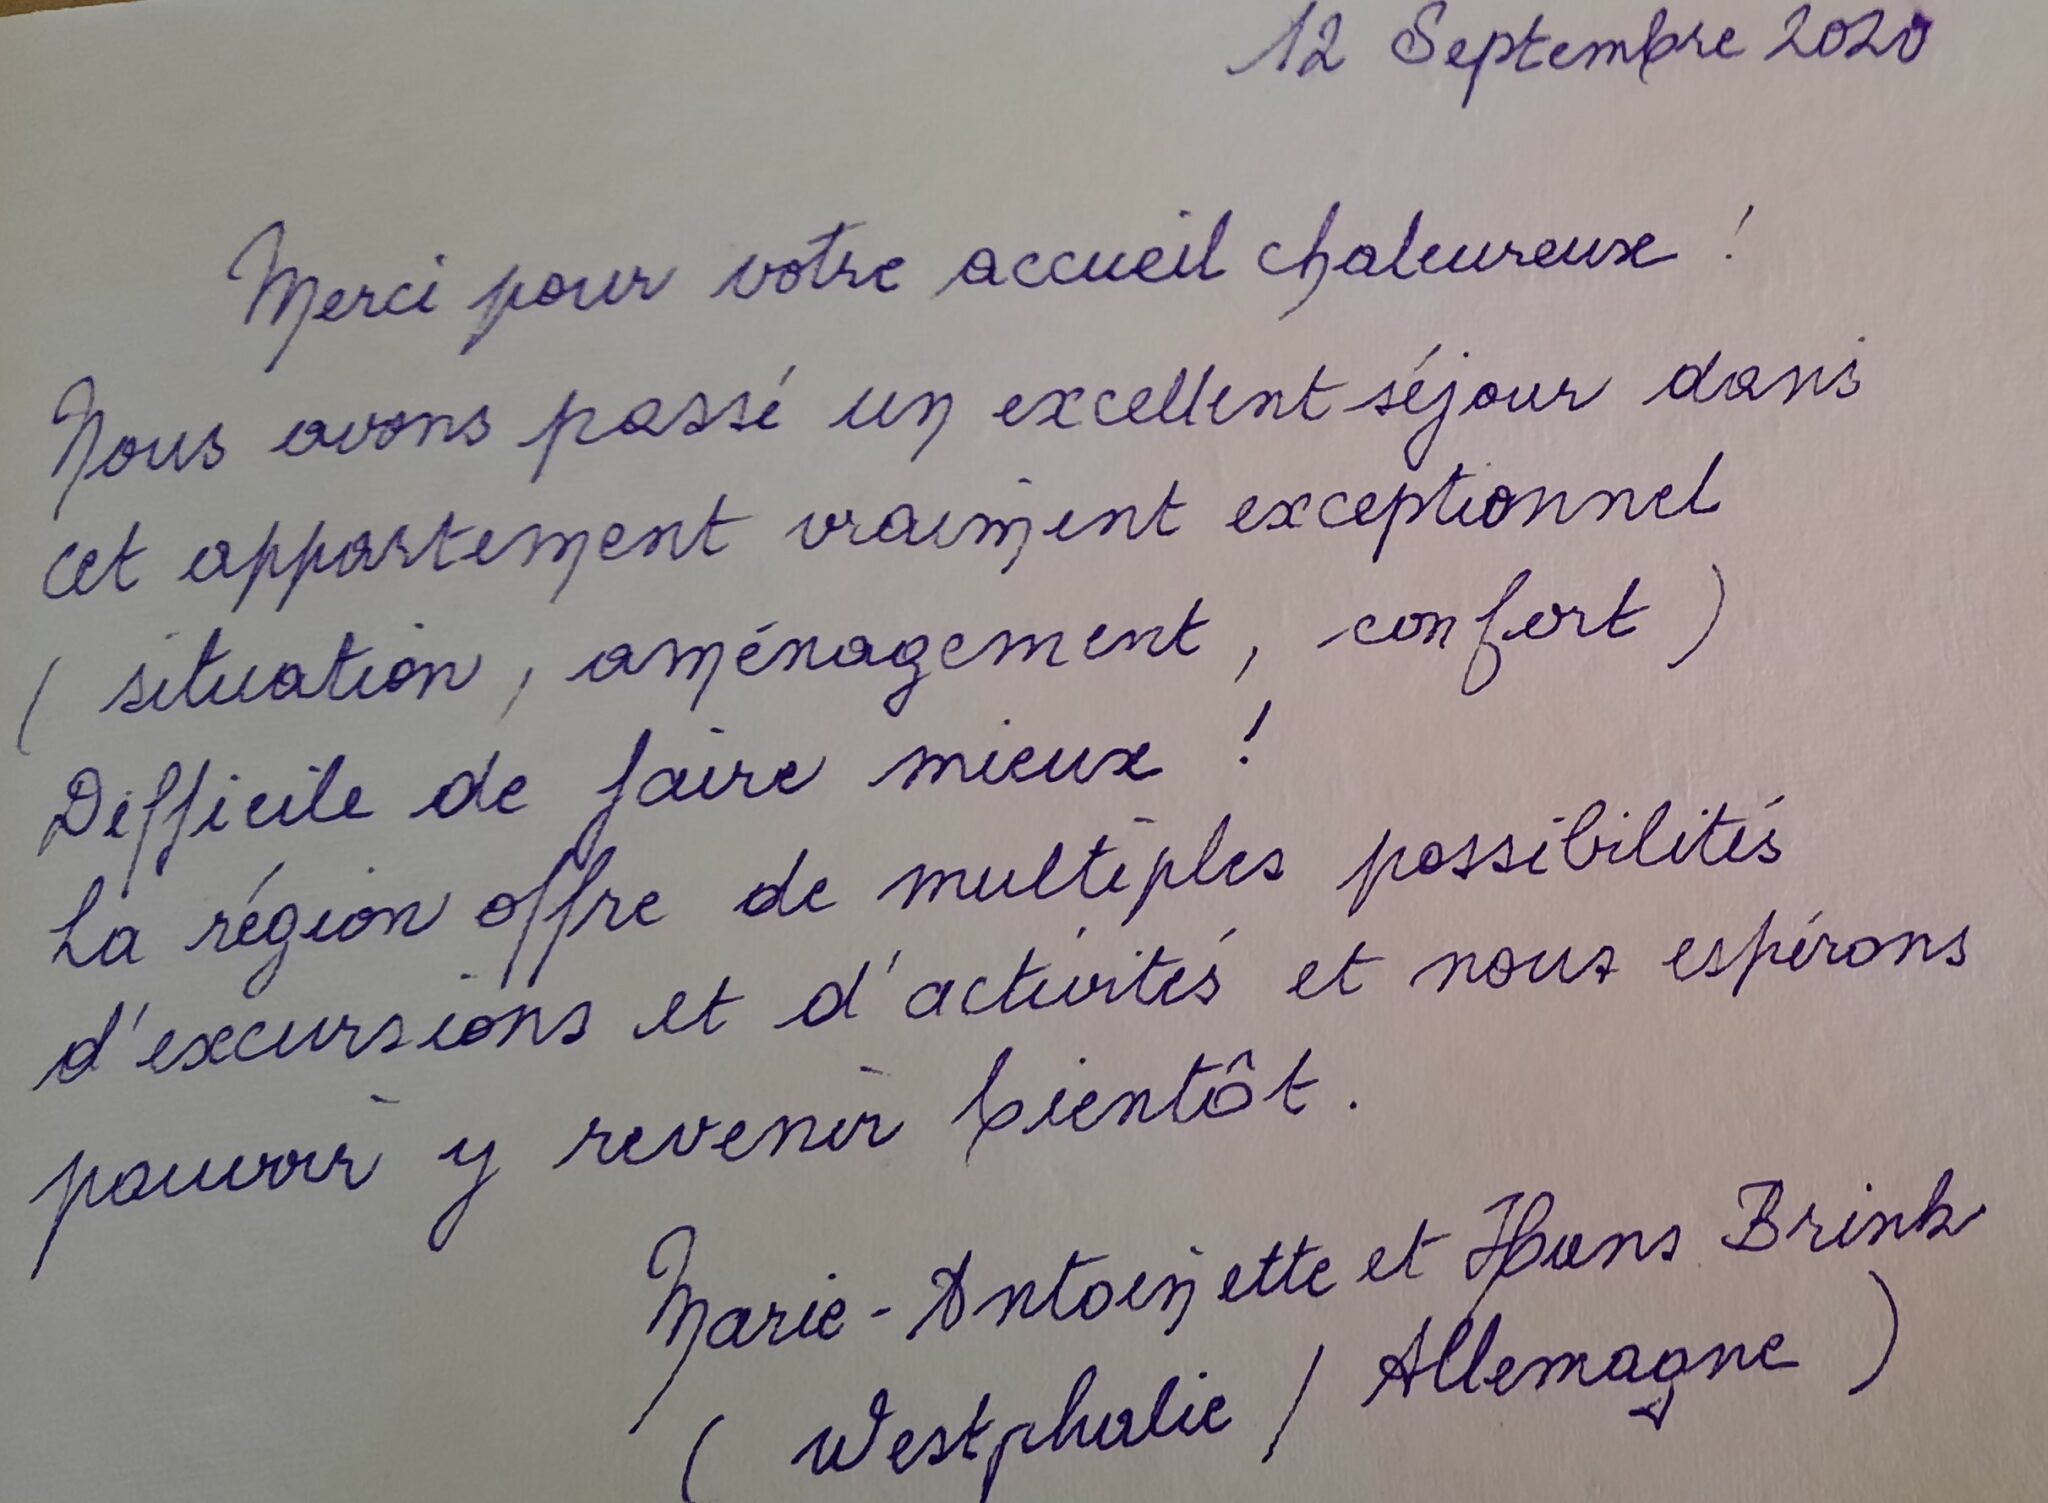 12 Septembre 2020
Merci pour votre accueil chaleureux !
Nous avons passé un excellent séjour dans
cet appartement vraiment exceptionnel
( situation, aménagement, confort )
Difficile de faire mieux !
La région offre de multiples possibilités
d'excursions et d'activités et nous espérons
pouvoir y revenir bientôt.
Marie-Antoinette et Hans Brink
( Westphalie / Allemagne )